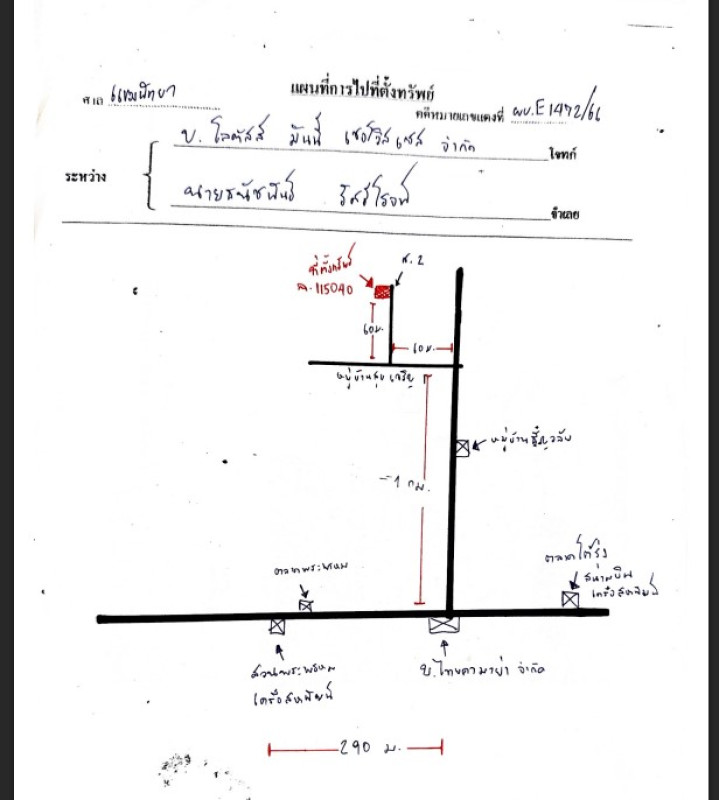 แผนที่การไปที่ตั้งทรัพย์
ศาล แขวงพัทยา
คดีหมายเลขแดงที่ ผบ.E1472/66
บ. โลตัสส์ มันนี่ เซอร์วิสเซส จำกัด โจทก์
ระหว่าง
จำเลย
ที่ตั้งทรัพย์
ล.115040
ซ.2
60ม.
60ม.
หมู่บ้านสุขเจริญ
หมู่บ้าน
1 กม.
ตลาดพระพรหม
ตลาดโต้รุ่ง
สนามบิน
เครือสหพัฒน์
สวนพระพรหม
เครือสหพัฒน์
บ.ไทยคามาย่า จำกัด
290 ม.